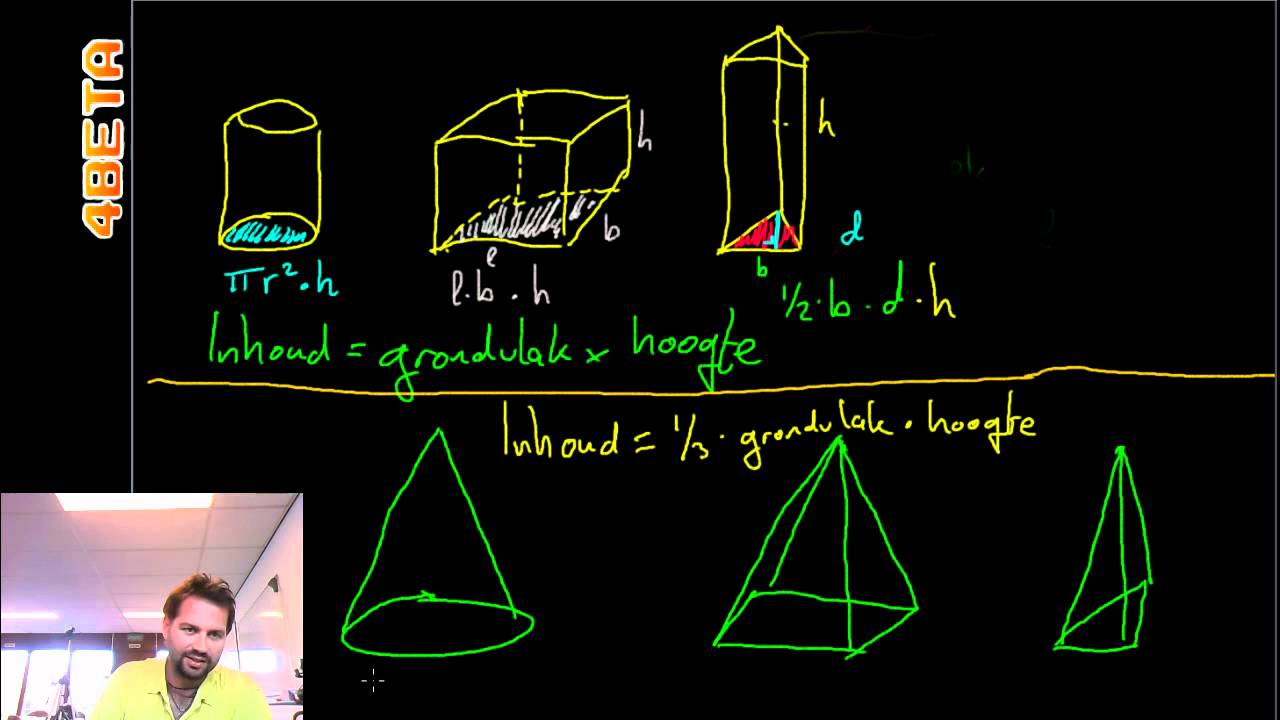 4BETA
h
h
b
d
l
b
πr²·h
l·b·h
1/2·b·d·h
Inhoud = grondvlak × hoogte
Inhoud = 1/3·grondvlak·hoogte